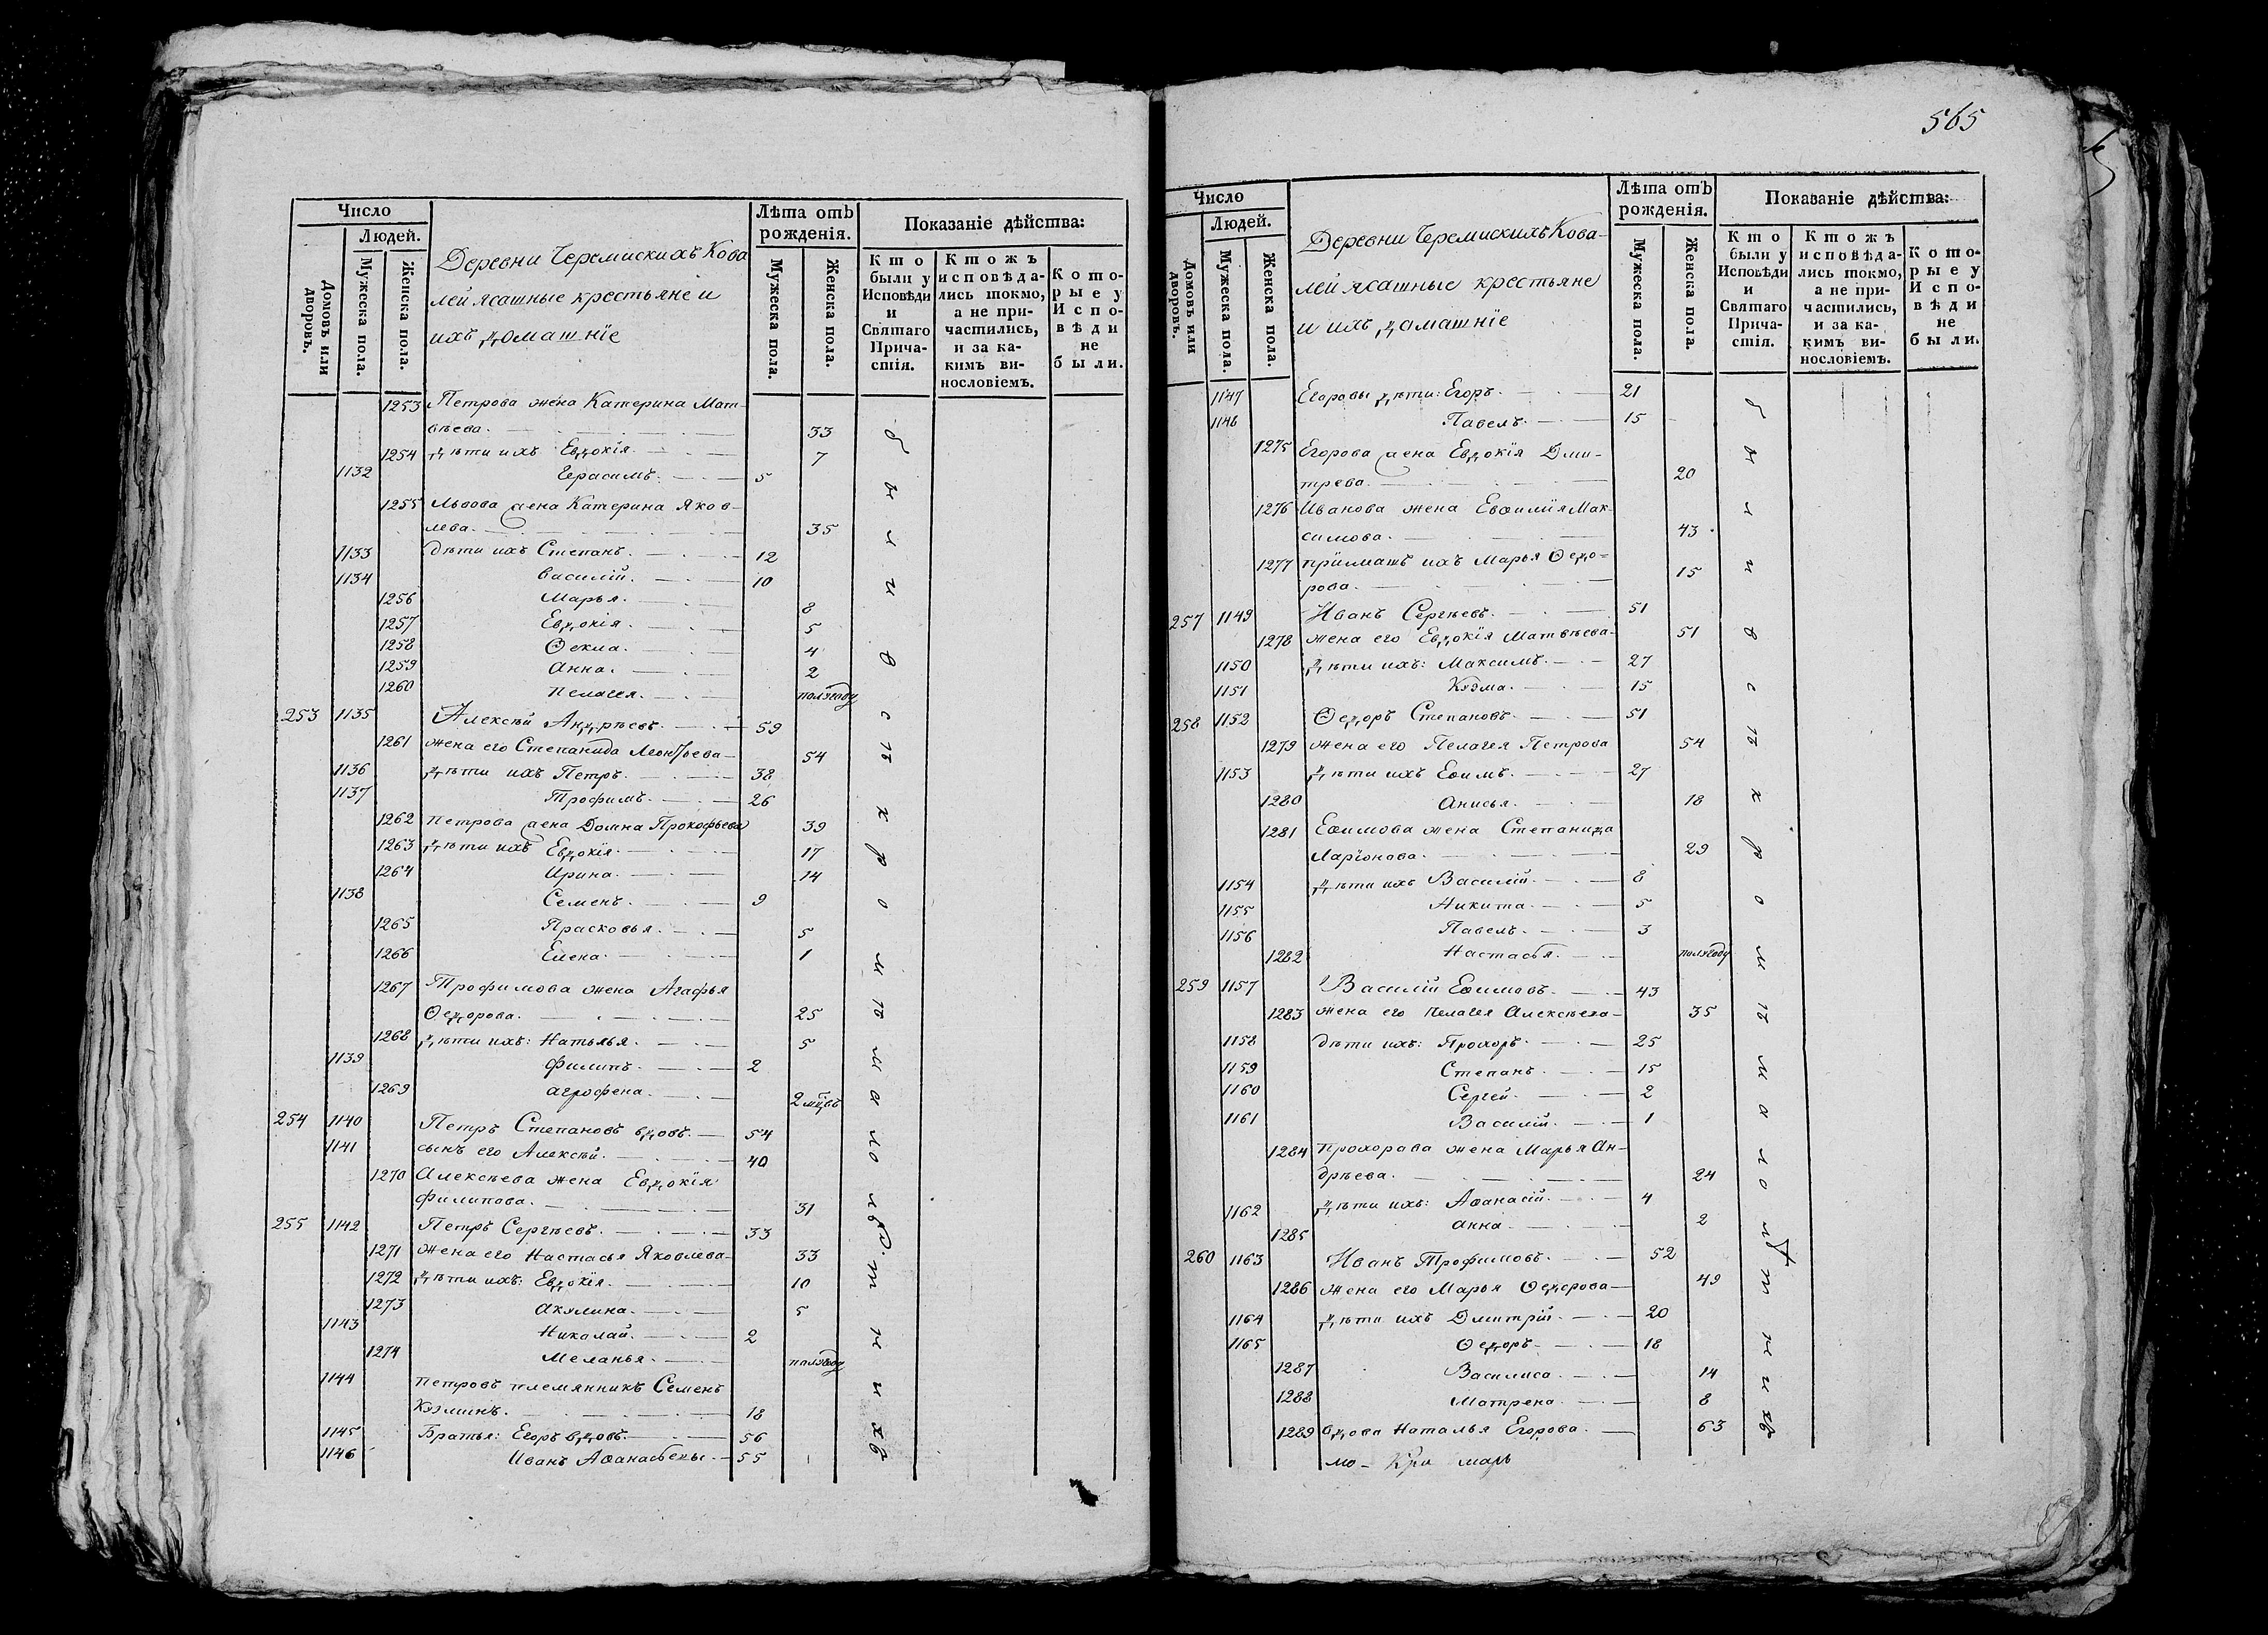 565
Число
Людей.
Домовъ или дворовъ.
Мужеска пола.
Женска пола.
Деревни Черемискихъ Кова
лей ясашные крестьяне и
ихъ домашніе
Лѣта отъ
рожденія.
Мужеска пола.
Женска пола.
Показаніе дѣйства:
Кто
были у
Исповѣди
и
Святаго
Прича-
стія.
Ктожъ
исповѣда-
лись токмо,
а не при-
частились,
и за ка-
кимъ ви-
нословіемъ.
Кото-
рые у
Испо-
вѣди
не
были.
1253 Петрова жена Катерина Мат-
вѣева. 33
1254 дѣти ихъ Евдокія. 7
1132 Герасимъ. 5
1255 Львова жена Катерина Яков-
лева. 35
1133 дѣти ихъ Степанъ. 12
1134 Василій. 10
1256 Марья. 8
1257 Евдокія. 5
1258 Ѳекла. 4
1259 Анна. 2
1260 Пелагея. полугоду
253 1135 Алексѣй Андрѣевъ. 59
1261 жена его Степанида Леонтьева 54
1136 дѣти ихъ Петръ. 38
1137 Трофимъ. 26
1262 Петрова жена Домна Прокофьева 39
1263 дѣти ихъ Евдокія. 17
1264 Ирина. 14
1138 Семенъ. 9
1265 Прасковья. 5
1266 Елена. 1
1267 Трофимова жена Агафья
Ѳедорова. 25
1268 дѣти ихъ: Наталья. 5
1139 Филипъ. 2
1269 Агрофена. 2 мцвъ
254 1140 Петръ Степановъ вдовъ. 54
1141 сынъ его Алексѣй. 40
1270 Алексѣева жена Евдокія
Филипова. 31
255 1142 Петръ Сергѣевъ. 33
1271 жена его Настасья Яковлева 33
1272 дѣти ихъ: Евдокія. 10
1273 Акулина. 5
1143 Николай. 2
1274 Меланья. полугоду
1144 Петровъ племянникъ Семенъ
Кузминъ. 18
1145 Братья: Егоръ вдовъ. 56
1146 Иванъ Аѳанасьевы. 55
Число
Людей.
Домовъ или дворовъ.
Мужеска пола.
Женска пола.
Деревни Черемискихъ Кова-
лей ясашные крестьяне
и ихъ домашніе
Лѣта отъ
рожденія.
Мужеска пола.
Женска пола.
Показаніе дѣйства:
Кто
были у
Исповѣди
и
Святаго
Прича-
стія.
Ктожъ
исповѣда-
лись токмо,
а не при-
частились,
и за ка-
кимъ ви-
нословіемъ.
Кото-
рые у
Испо-
вѣди
не
были.
1147 Егоровы дѣти: Егоръ. 21
1148 Павелъ. 15
1275 Егорова жена Евдокія Дми-
трева. 20
1276 Иванова жена Евѳимія Мак-
симова. 43
1277 пріимашъ ихъ Марья Ѳедо-
рова. 15
257 1149 Иванъ Сергѣевъ. 51
1278 жена его Евдокія Матвѣева 51
1150 дѣти ихъ: Максимъ. 27
1151 Кузма. 15
258 1152 Ѳедоръ Степановъ. 51
1279 жена его Пелагея Петрова 54
1153 дѣти ихъ Еѳимъ. 27
1280 Анисья. 18
1281 Еѳимова жена Степанида
Ларіонова. 29
1154 дѣти ихъ Василій. 8
1155 Никита. 5
1156 Павелъ. 3
1282 Настасья. полугоду
259 1157 Василій Еѳимовъ. 43
1283 жена его Пелагея Алексѣева 35
1158 дѣти ихъ: Прохоръ. 25
1159 Степанъ. 15
1160 Сергей. 2
1161 Василій. 1
1284 Прохорова жена Марья Ан-
дрѣева. 24
1162 дѣти ихъ: Аѳанасій. 4
1285 Анна. 2
260 1163 Иванъ Трофимовъ. 52
1286 жена его Марья Ѳедорова 49
1164 дѣти ихъ Дмитрій. 20
1165 Ѳедоръ. 18
1287 Василиса. 14
1288 Матрена. 8
1289 вдова Наталья Егорова. 63